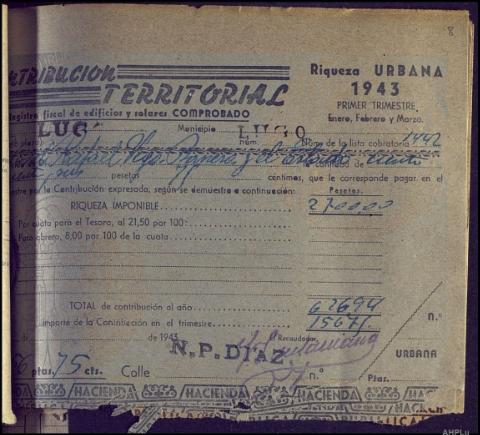 8
NTRIBUCION
TERRITORIAL
Registro fiscal de edificios y solares COMPROBADO
Riqueza URBANA
1943
PRIMER TRIMESTRE,
Enero, Febrero y Marzo.
LUG Municipio LUGO
Núm. de la lista cobratoria 1442
Rafael Vega
la cantidad de
pesetas céntimos, que le corresponde pagar en el
stre por la Contribución expresada, según se demuestra a continuación:
Pesetas.
RIQUEZA IMPONIBLE 2700,00
Por cuota para el Tesoro, al 21,50 por 100:
Paro obrero, 8,00 por 100 de la cuota
TOTAL de contribución al año 62694
Importe de la Contribución en el trimestre 15671.
de 1943 El Recaudador,
N.P. DIAZ
n.º
URBANA
6 ptas. 75 cts. Calle n.º Ptas.
HACIENDA HACIENDA HACIENDA
AHPLu